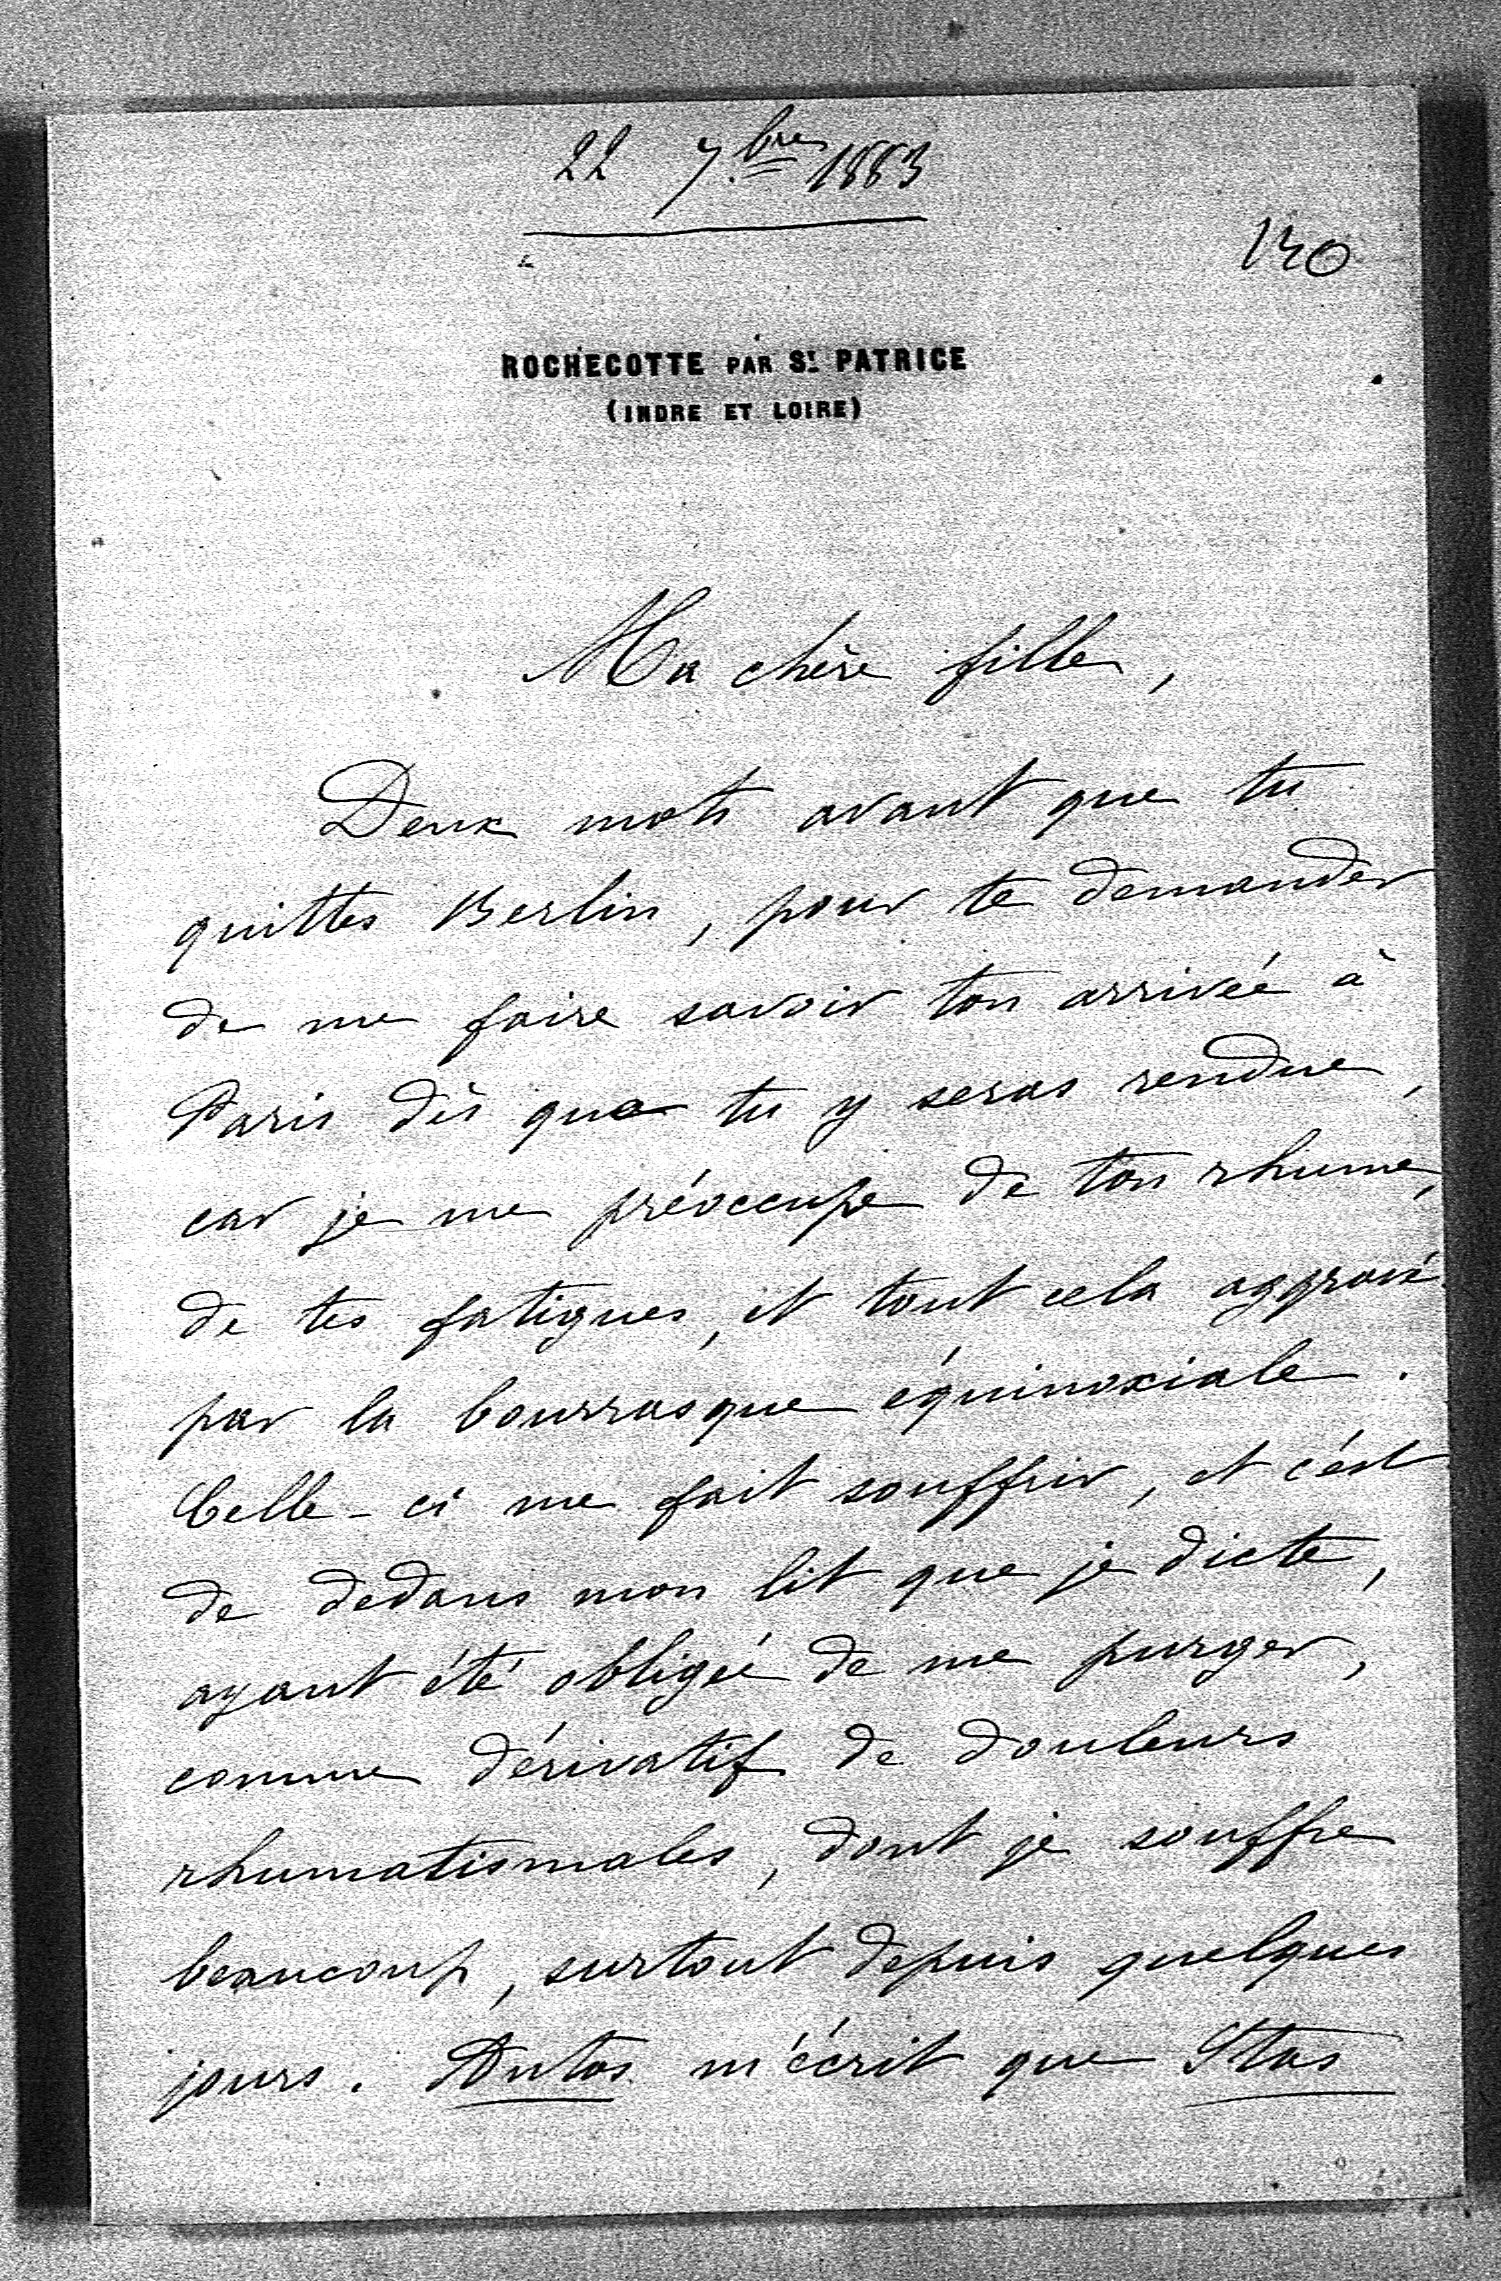 22 7bre 1883
130
ROCHECOTTE PAR St PATRICE
(INDRE ET LOIRE)
Ma chère fille,
Deux mots avant que tu
quittes Berlin, pour te demander
de me faire savoir ton arrivée à
Paris dès que tu y seras rendue,
car je me préoccupe de ton rhume,
de tes fatigues, et tout cela aggravé
par la bourrasque équinoxiale.
Celle-ci me fait souffrir, et c'est
de dedans mon lit que je dicte,
ayant été obligée de me purger,
comme dérivatif de douleurs
rhumatismales, dont je souffre
beaucoup, surtout depuis quelques
jours. Antos m'écrit que Stas